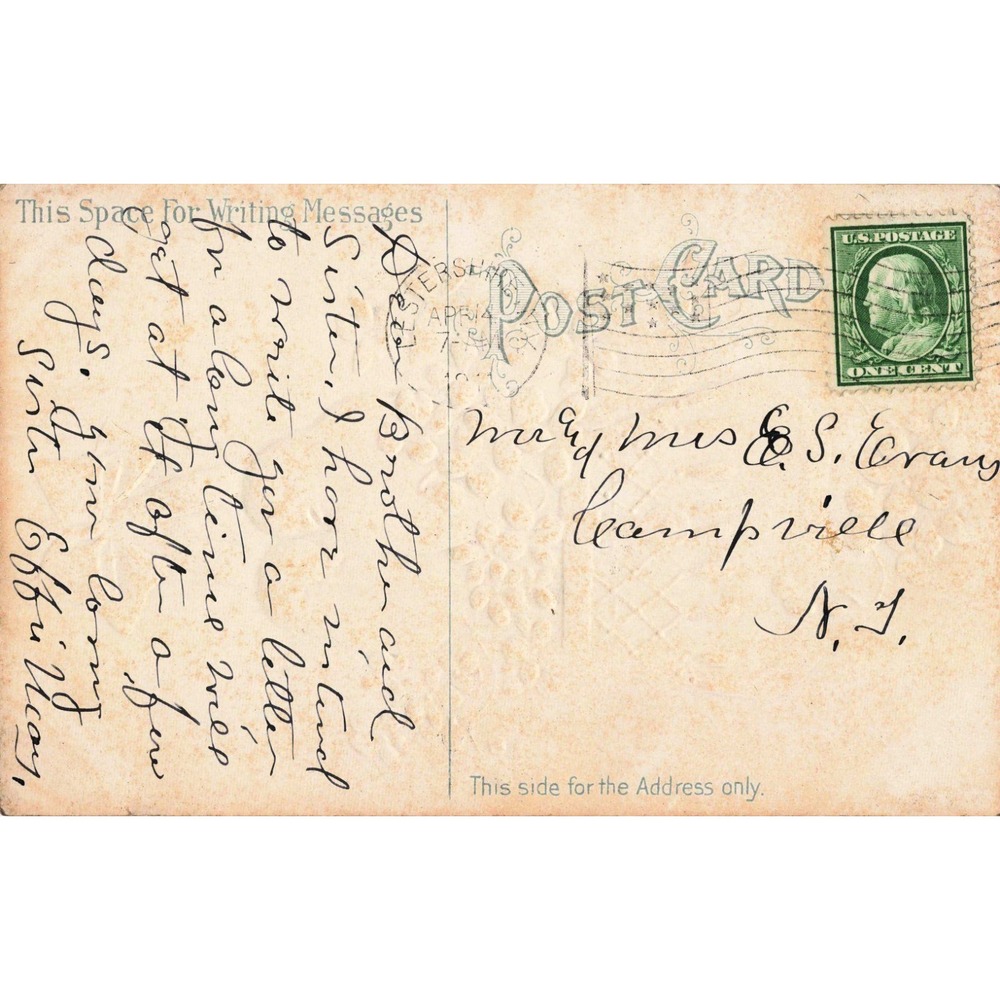 This Space For Writing Messages
Dear Brother and
Sister, I have intend
to write you a letter
for a long time will
get at it after a few
days. your loving
Sister Effie
POST CARD
LESTERSHIRE
APR 14
U.S. POSTAGE
ONE CENT
Mr & Mrs E. S. Evans
Campville
N. Y.
This side for the Address only.